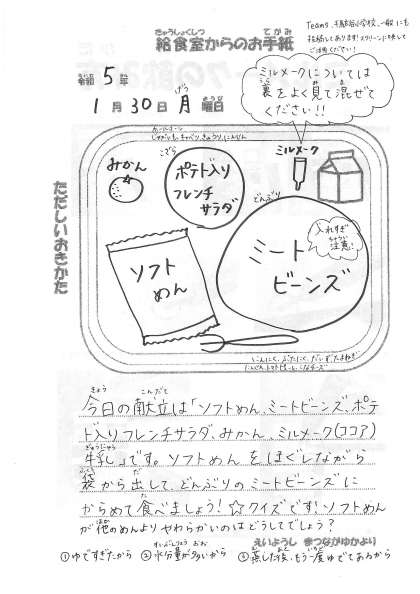 きゅうしょくしつ
てがみ
給食室からのお手紙
ご覧ください!
令和5年
1月30日月曜日
ミルメークについては
裏をよく見て混ぜて
ください!!
みかん
こざら
ポテト入り
フレンチ
サラダ
ミルメーク
どんぶり
入れすぎ
注意!
ミート
ビーンズ
ソフト
めん
ただしいおきかた
きょう
こんだて
今日の献立は「ソフトめん、ミートビーンズ、ポテ
ト入りフレンチサラダ、みかん、ミルメーク(ココア)
ぎゅうにゅう
牛乳」です。ソフトめんをほぐしながら
ふくろ
だ
袋から出して、どんぶりのミートビーンズに
た
からめて食べましょう!☆クイズです!ソフトめん
ほか
が他のめんよりやわらかいのはどうしてでしょう?
えいようし まつながゆかより
すいぶんりょう おお
①ゆですぎたから ②水分量が多いから ③蒸した後、もう一度ゆでてあるから